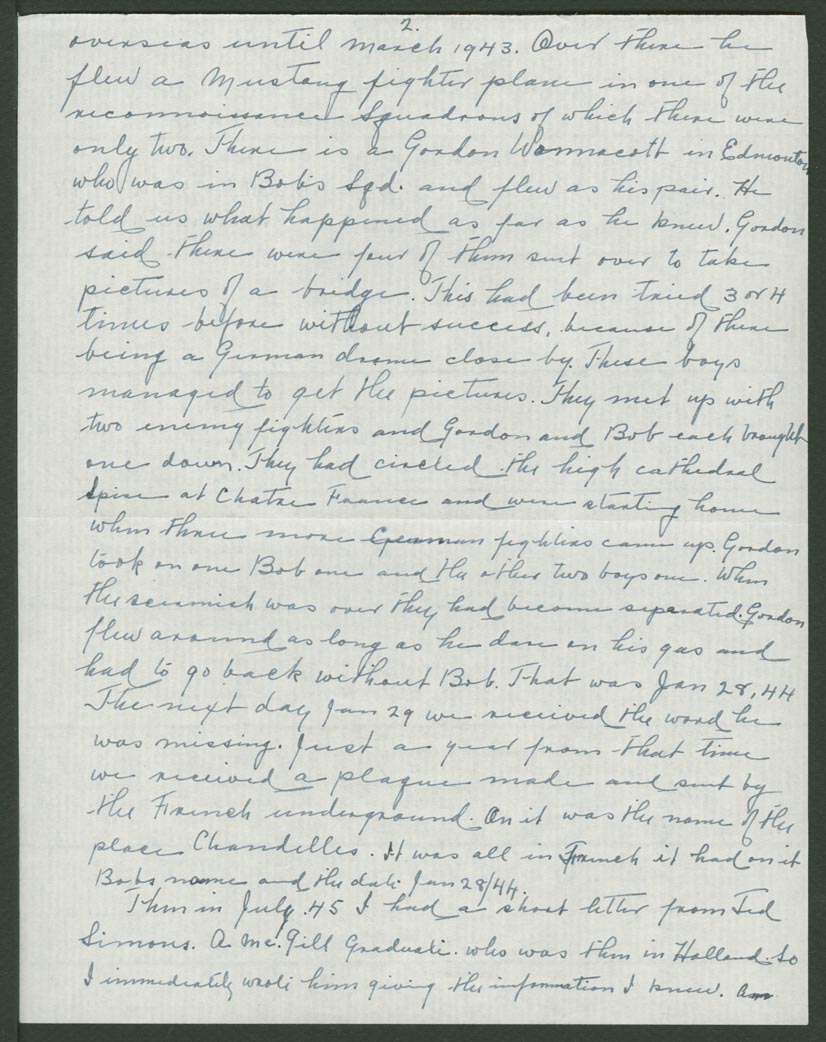 2.
overseas until March 1943. Over there he
flew a Mustang fighter plane in one of the
reconnoissance Squadrons of which there were
only two. There is a Gordon Wonnacott in Edmonton
who was in Bob's Sqd. and flew as his pair. He
told us what happened as far as he knew. Gordon
said there were four of them sent over to take
pictures of a bridge. This had been tried 3 or 4
times before without success, because of there
being a German drome close by. These boys
managed to get the pictures. They met up with
two enemy fighters and Gordon and Bob each brought
one down. They had circled the high cathedral
spire at Chatre France and were starting home
when three more German fighters came up. Gordon
took on one Bob one and the other two boys one. When
the scirmish was over they had become separated. Gordon
flew around as long as he dare on his gas and
had to go back without Bob. That was Jan 28, 44
The next day Jan 29 we received the word he
was missing. Just a year from that time
we received a plaque made and sent by
the French underground. On it was the name of the
place Chandelles. It was all in French it had on it
Bobs name and the date Jan 28/44.
Then in July 45 I had a short letter from Ted
Simons. A Mc.Gill Graduate. who was then in Holland. So
I immediately wrote him giving the information I knew. Am